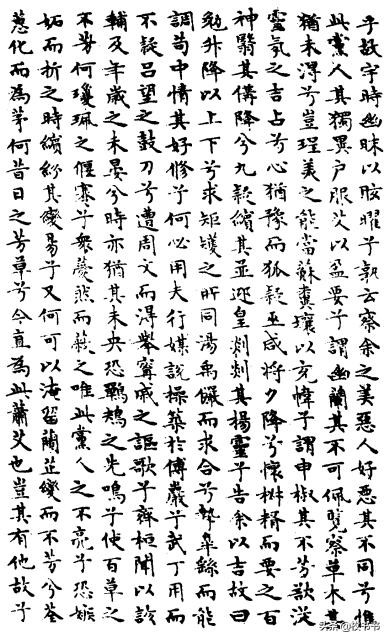 乎故宇時幽昧以眩曜兮孰云察余之美惡人好惡其不同兮惟
此黨人其獨異戶服艾以盈要兮謂幽蘭其不可佩覽察草木其
猶未得兮豈珵美之能當蘇糞壤以充幃兮謂申椒其不芳欲從
靈氛之吉占兮心猶豫而狐疑巫咸將夕降兮懷椒糈而要之百
神翳其備降兮九疑繽其並迎皇剡剡其揚靈兮告余以吉故曰
勉升降以上下兮求矩矱之所同湯禹儼而求合兮摯皋繇而能
調苟中情其好修兮何必用夫行媒說操築於傅巖兮武丁用而
不疑呂望之鼓刀兮遭周文而得舉甯戚之謳歌兮齊桓聞以該
輔及年歲之未晏兮時亦猶其未央恐鵜鴂之先鳴兮使百草之
不芳何瓊珮之偃蹇兮眾薆然而蔽之唯此黨人之不亮兮恐嫉
妬而折之時繽紛其變易兮又何可以淹留蘭芷變而不芳兮荃
蕙化而為茅何昔日之芳草兮今直為此蕭艾也豈其有他故兮
头条 @校书书